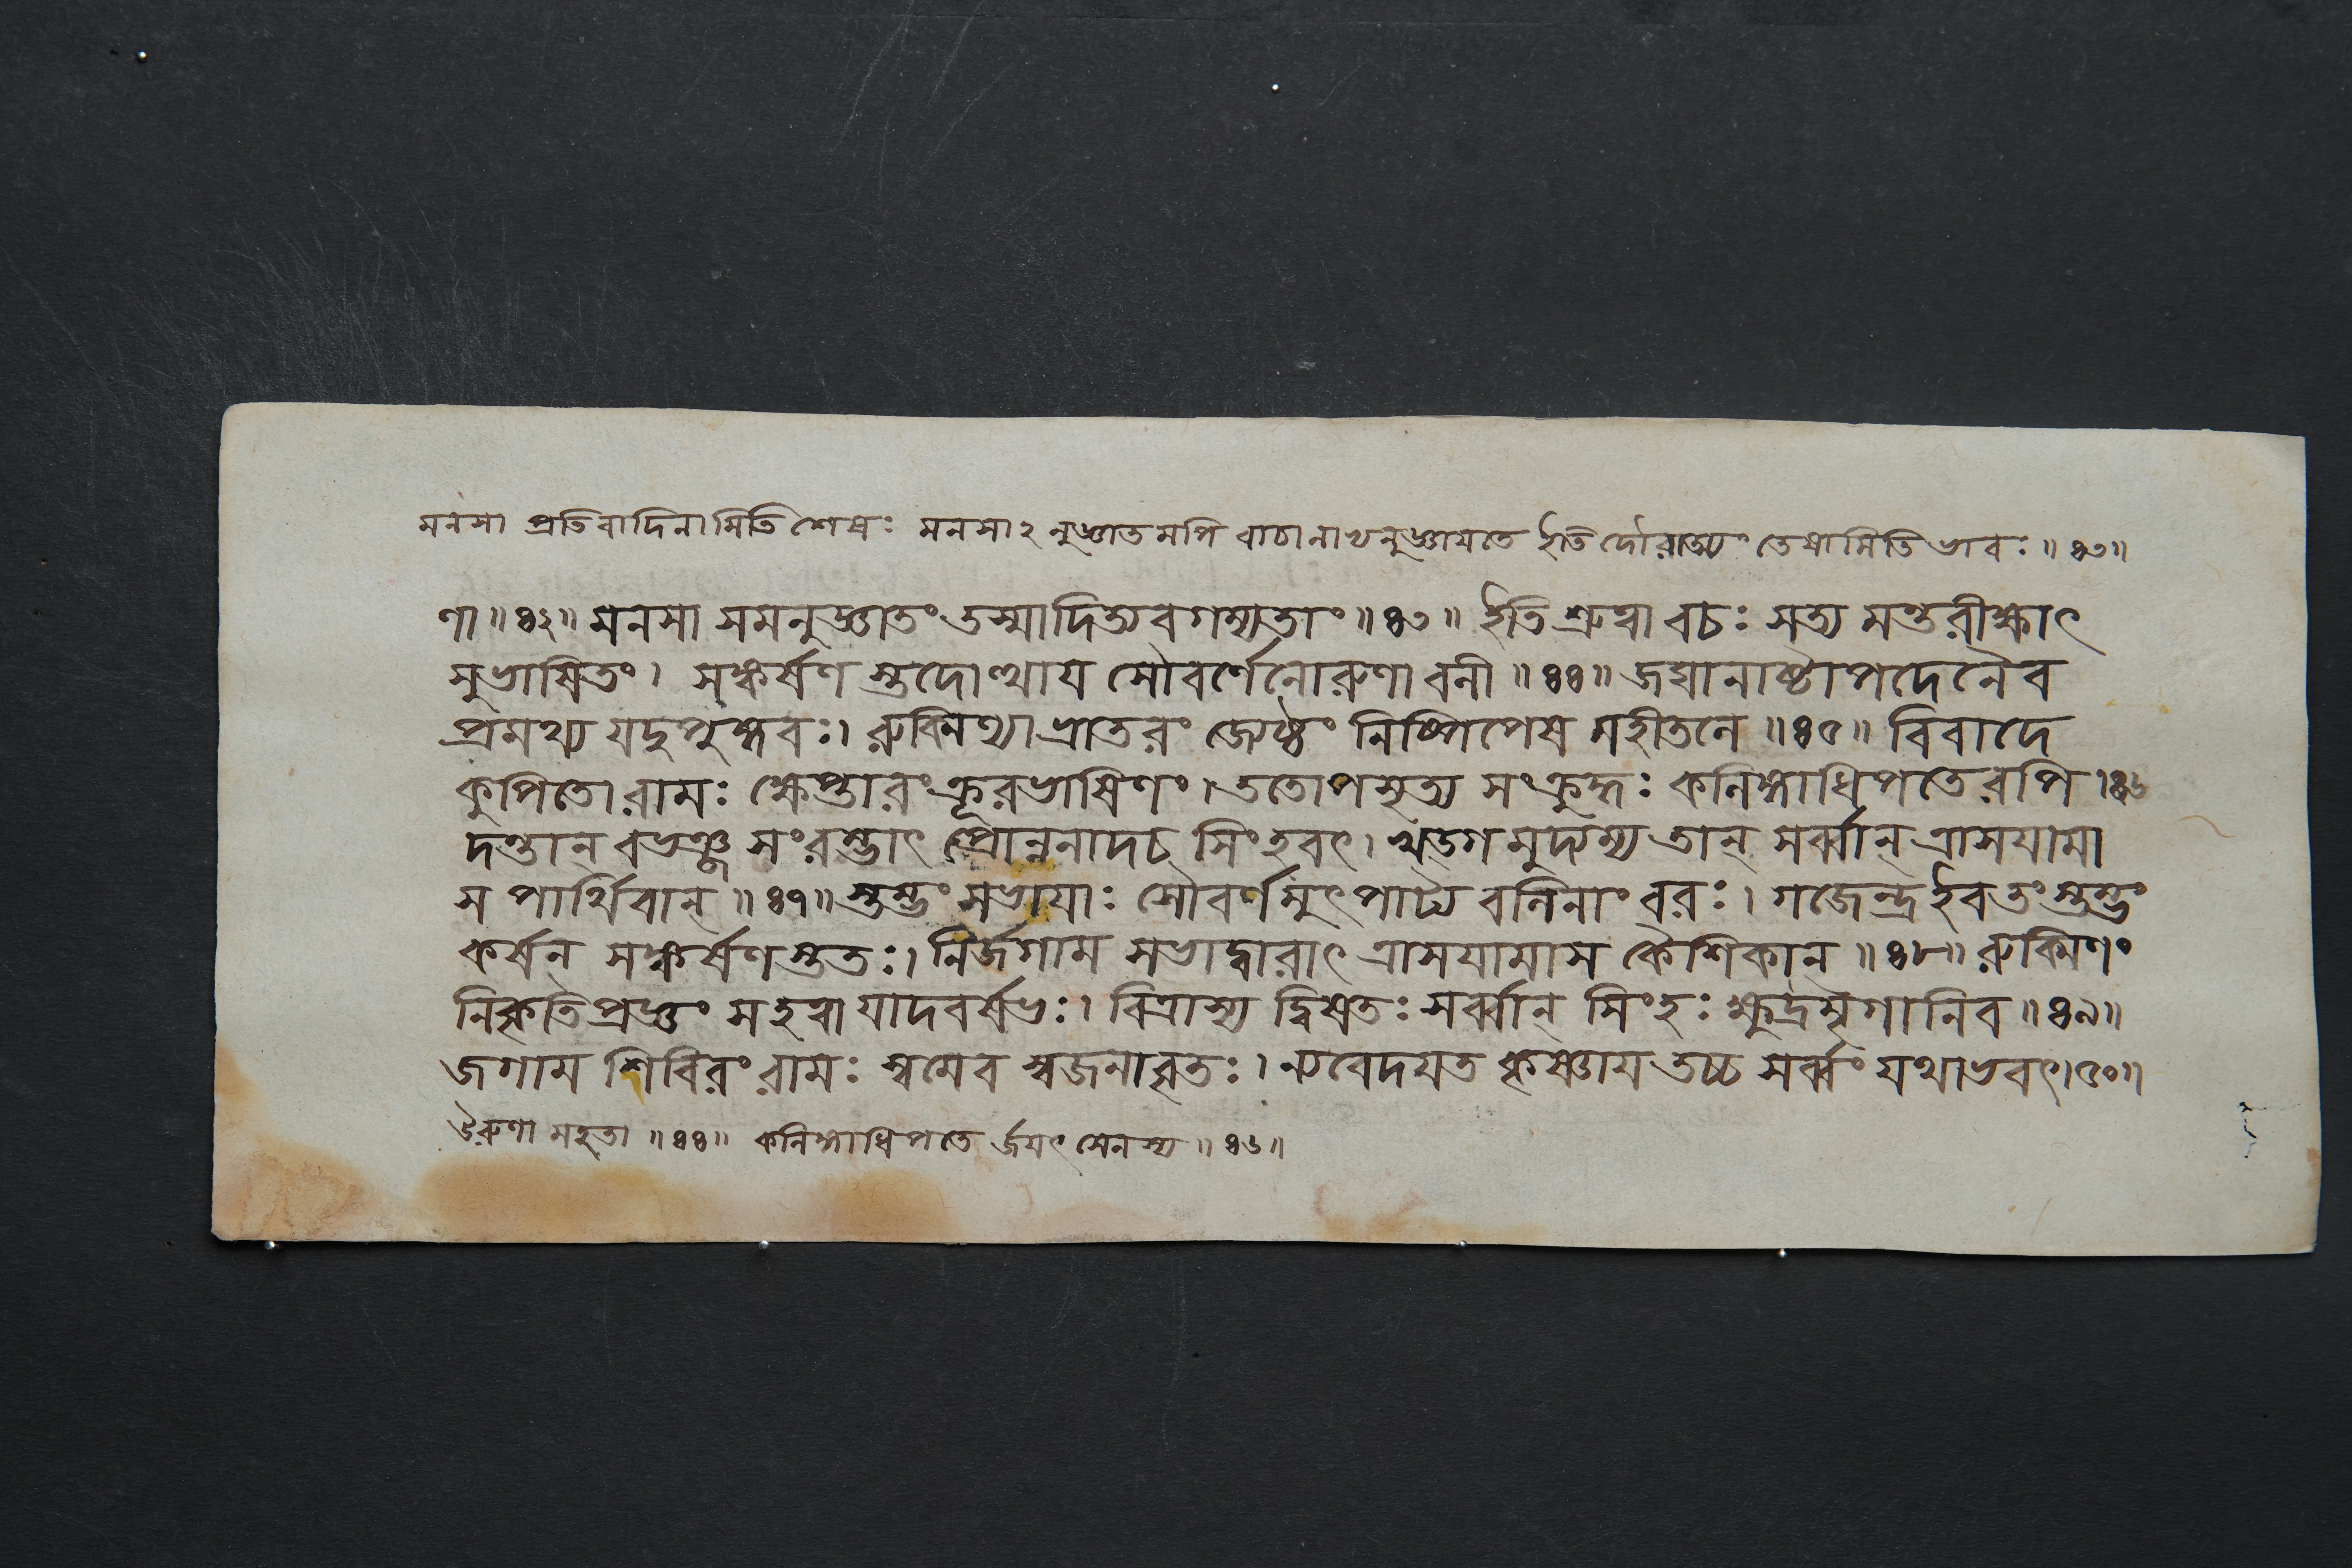 মনসা প্রতিবাদিনামিতি শেষঃ মনসাঽনুজ্ঞাতমপি বাচা নাভ্যনুজ্ঞায়তে ইতি দৌরাত্ম্যং তেষামিতি ভাবঃ ॥ ৪৩॥
ণা ॥ ৪২॥ মনসা সমনুজ্ঞাতং তস্মাদিত্যবগম্যতাং ॥ ৪৩॥ ইতি শ্রুত্বা বচঃ সত্য মন্তরীক্ষাৎ
সুভাষিতং। সঙ্কর্ষণ স্তদোত্থায় সৌবর্ণেনোরুণা বলী ॥ ৪৪॥ জঘানাষ্টাপদেনৈব
প্রমথ্য যদুপুঙ্গবঃ। রুক্মিণ্যা ভ্রাতরং জ্যেষ্ঠং নিষ্পিপেষ মহীতলে ॥ ৪৫॥ বিবাদে
কুপিতো রামঃ ক্ষেপ্তারং ক্রূরভাষিণং। ততোপসৃত্য সংক্রুদ্ধঃ কলিঙ্গাধিপতেরপি। ৪৬
দন্তান্ বভঞ্জ সংরম্ভাৎ প্রোন্ননাদচ সিংহবৎ। খড্গ মুদ্যম্য তান্ সর্ব্বান্ ত্রাসয়ামা
স পার্থিবান্ ॥ ৪৭॥ স্তম্ভং সভায়াঃ সৌবর্ণমুৎপাট্য বলিনাং বরঃ। গজেন্দ্র ইবতং স্তম্ভং
কর্ষন্ সঙ্কর্ষণ স্ততঃ। নির্জগাম সভাদ্বারাৎ ত্রাসয়ামাস কৈশিকান্ ॥ ৪৮॥ রুক্মিণং
নিকৃতিপ্রজ্ঞং স হত্বা যাদবর্ষভঃ। বিত্রাস্য দ্বিষতঃ সর্ব্বান্ সিংহঃ ক্ষুদ্রমৃগানিব ॥ ৪৯॥
জগাম শিবিরং রামঃ স্বমেব স্বজনাবৃতঃ। ন্যবেদয়ত কৃষ্ণায় তচ্চ সর্ব্বং যথাভবৎ। ৫০॥
উরুণা মহতা ॥ ৪৪॥ কলিঙ্গাধিপতে র্জয়ৎসেনস্য ॥ ৪৬॥